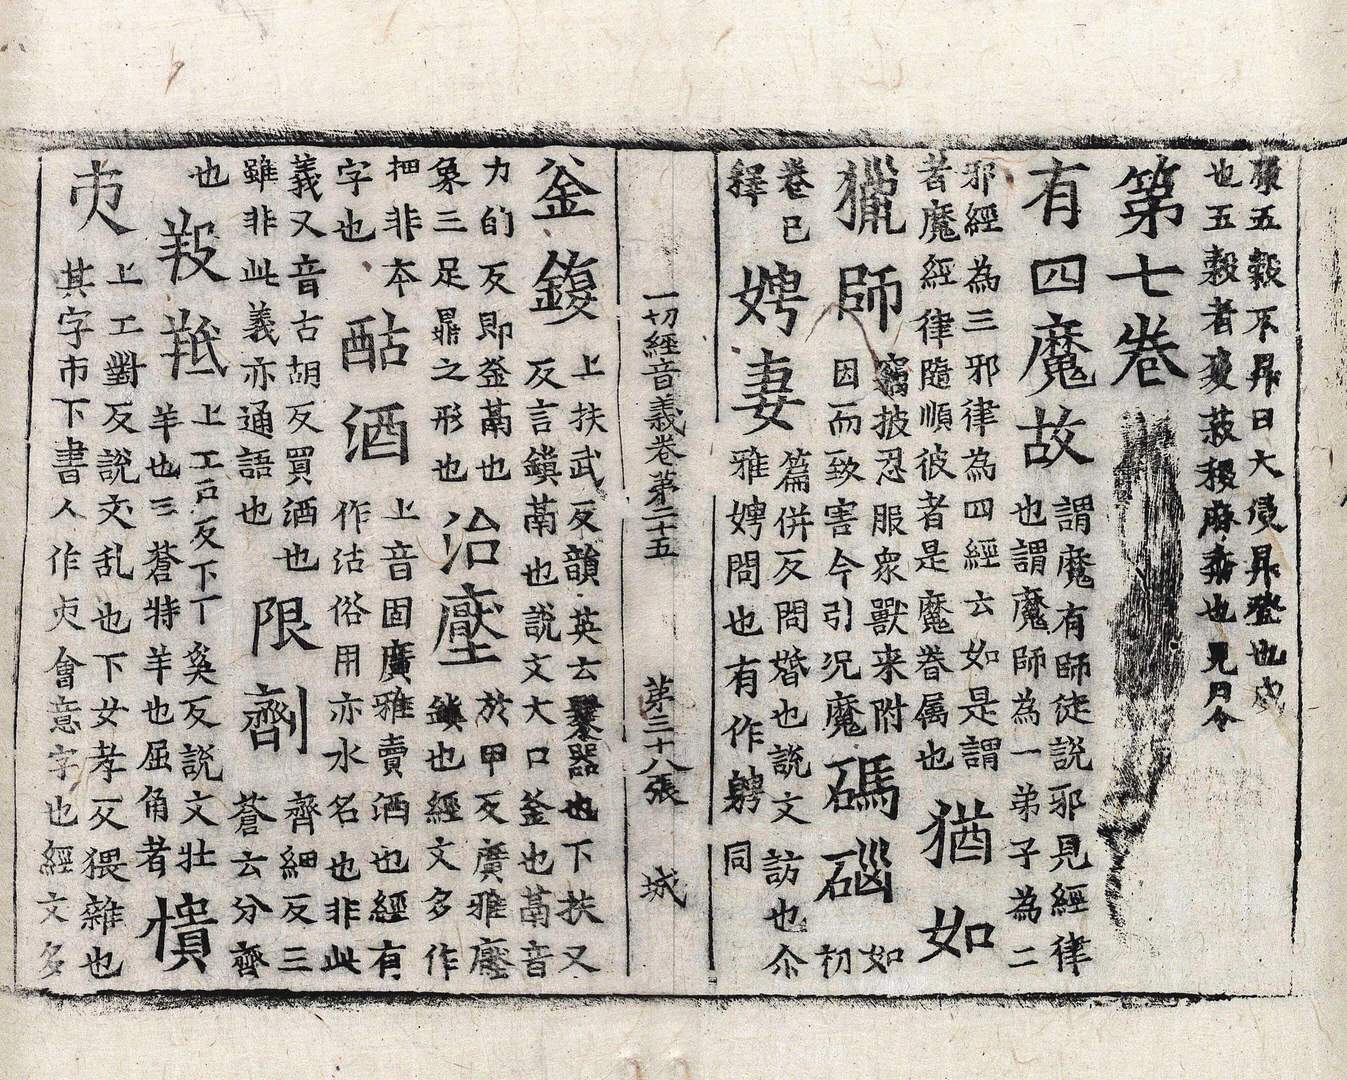 康五穀不昇曰大侵昇登也成
也五穀者麦菽稷麻黍也見月令
第七卷
有四魔故
謂魔有師徒說邪見經律
也謂魔師為一弟子為二
邪經為三邪律為四經云如是謂
者魔經律隨順彼者是魔眷属也
猶如
獵師
竊披忍服衆獸来附
因而致害今引況魔
碼碯
如
初
卷已
釋
娉妻
篇併反問婚也說文訪也尒
雅娉問也有作聘同
一切經音義卷第二十五 第三十八張 城
釜鍑
上扶武反韻英云爨器也下扶又
反言鎮鬲也說文大口釜也鬲音
力的反即釜鬲也
象三足鼎之形也
治壓
於甲反廣雅壓
鎮也經文多作
押非本
字也
酤酒
上音固廣雅賣酒也經有
作沽俗用亦水名也非此
義又音古胡反買酒也
雖非此義亦通語也
限劑
齊細反三
蒼云分齊
也
羖羝
上工戶反下丁奚反說文壮
羊也三蒼特羊也屈角者
憒
上工對反說文乱也下女孝反猥雜也
其字市下書人作會意字也經文多